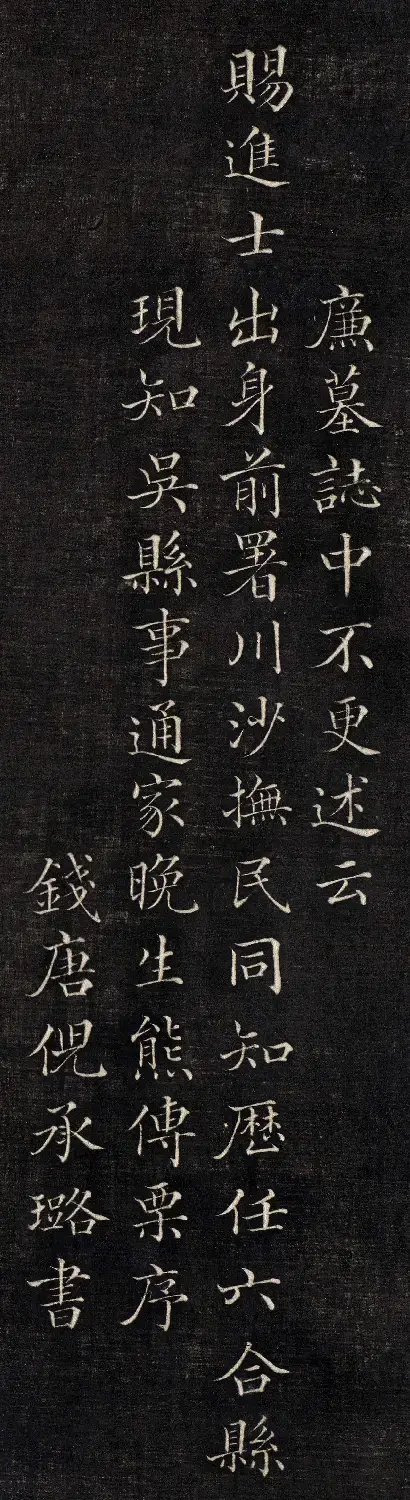 廉墓誌中不更述云
賜進士出身前署川沙撫民同知歷任六合縣
現知吳縣事通家晚生熊傳栗序
錢唐倪承璐書